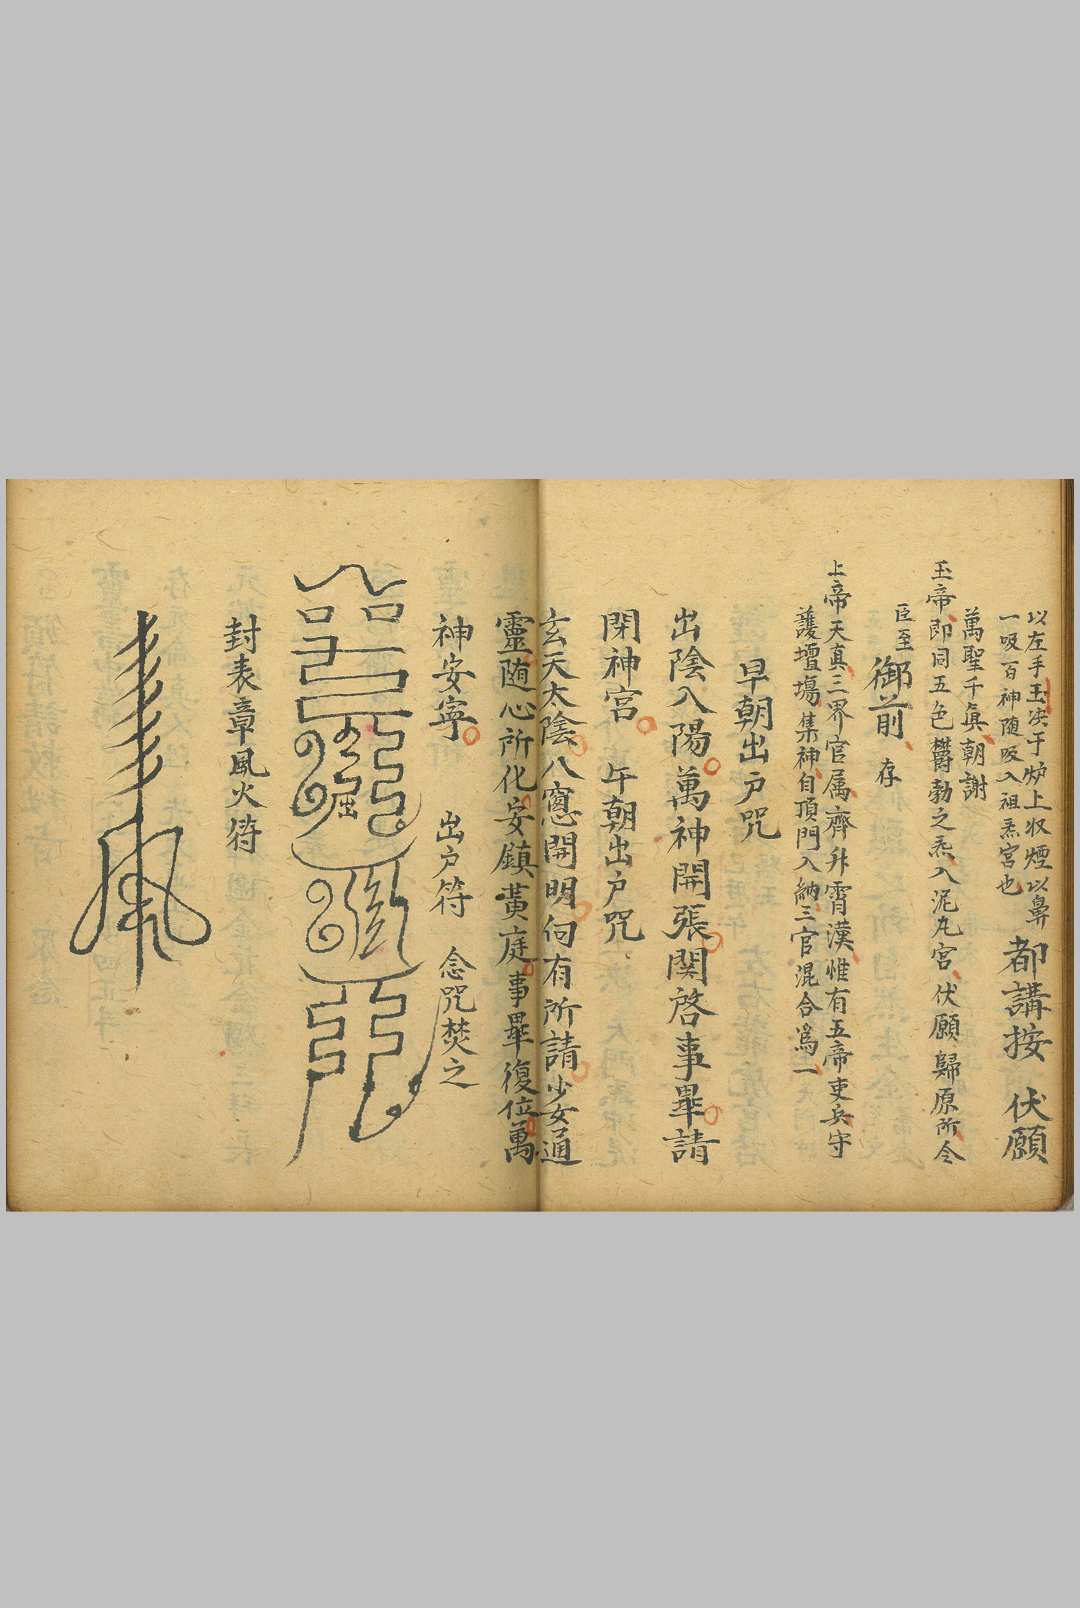 以左手玉决于炉上収煙以鼻
一吸百神随吸入祖炁宮也
都講按 伏願
萬聖千眞朝謝
玉帝即同五色欝勃之炁入泥丸宮伏願歸原所令
臣至御前 存
上帝天真三界官属齊升霄漢惟有五帝吏兵守
護壇塲集神自頂門入納三官混合爲一
早朝出户咒
出陰入陽萬神開張関啓事畢請
閉神宮 午朝出户咒
玄天太陰八窻開明何有所請少女通
靈随心所化安鎮黃庭事畢復位萬
神安寧 出户符 念咒焚之
封表章風火符